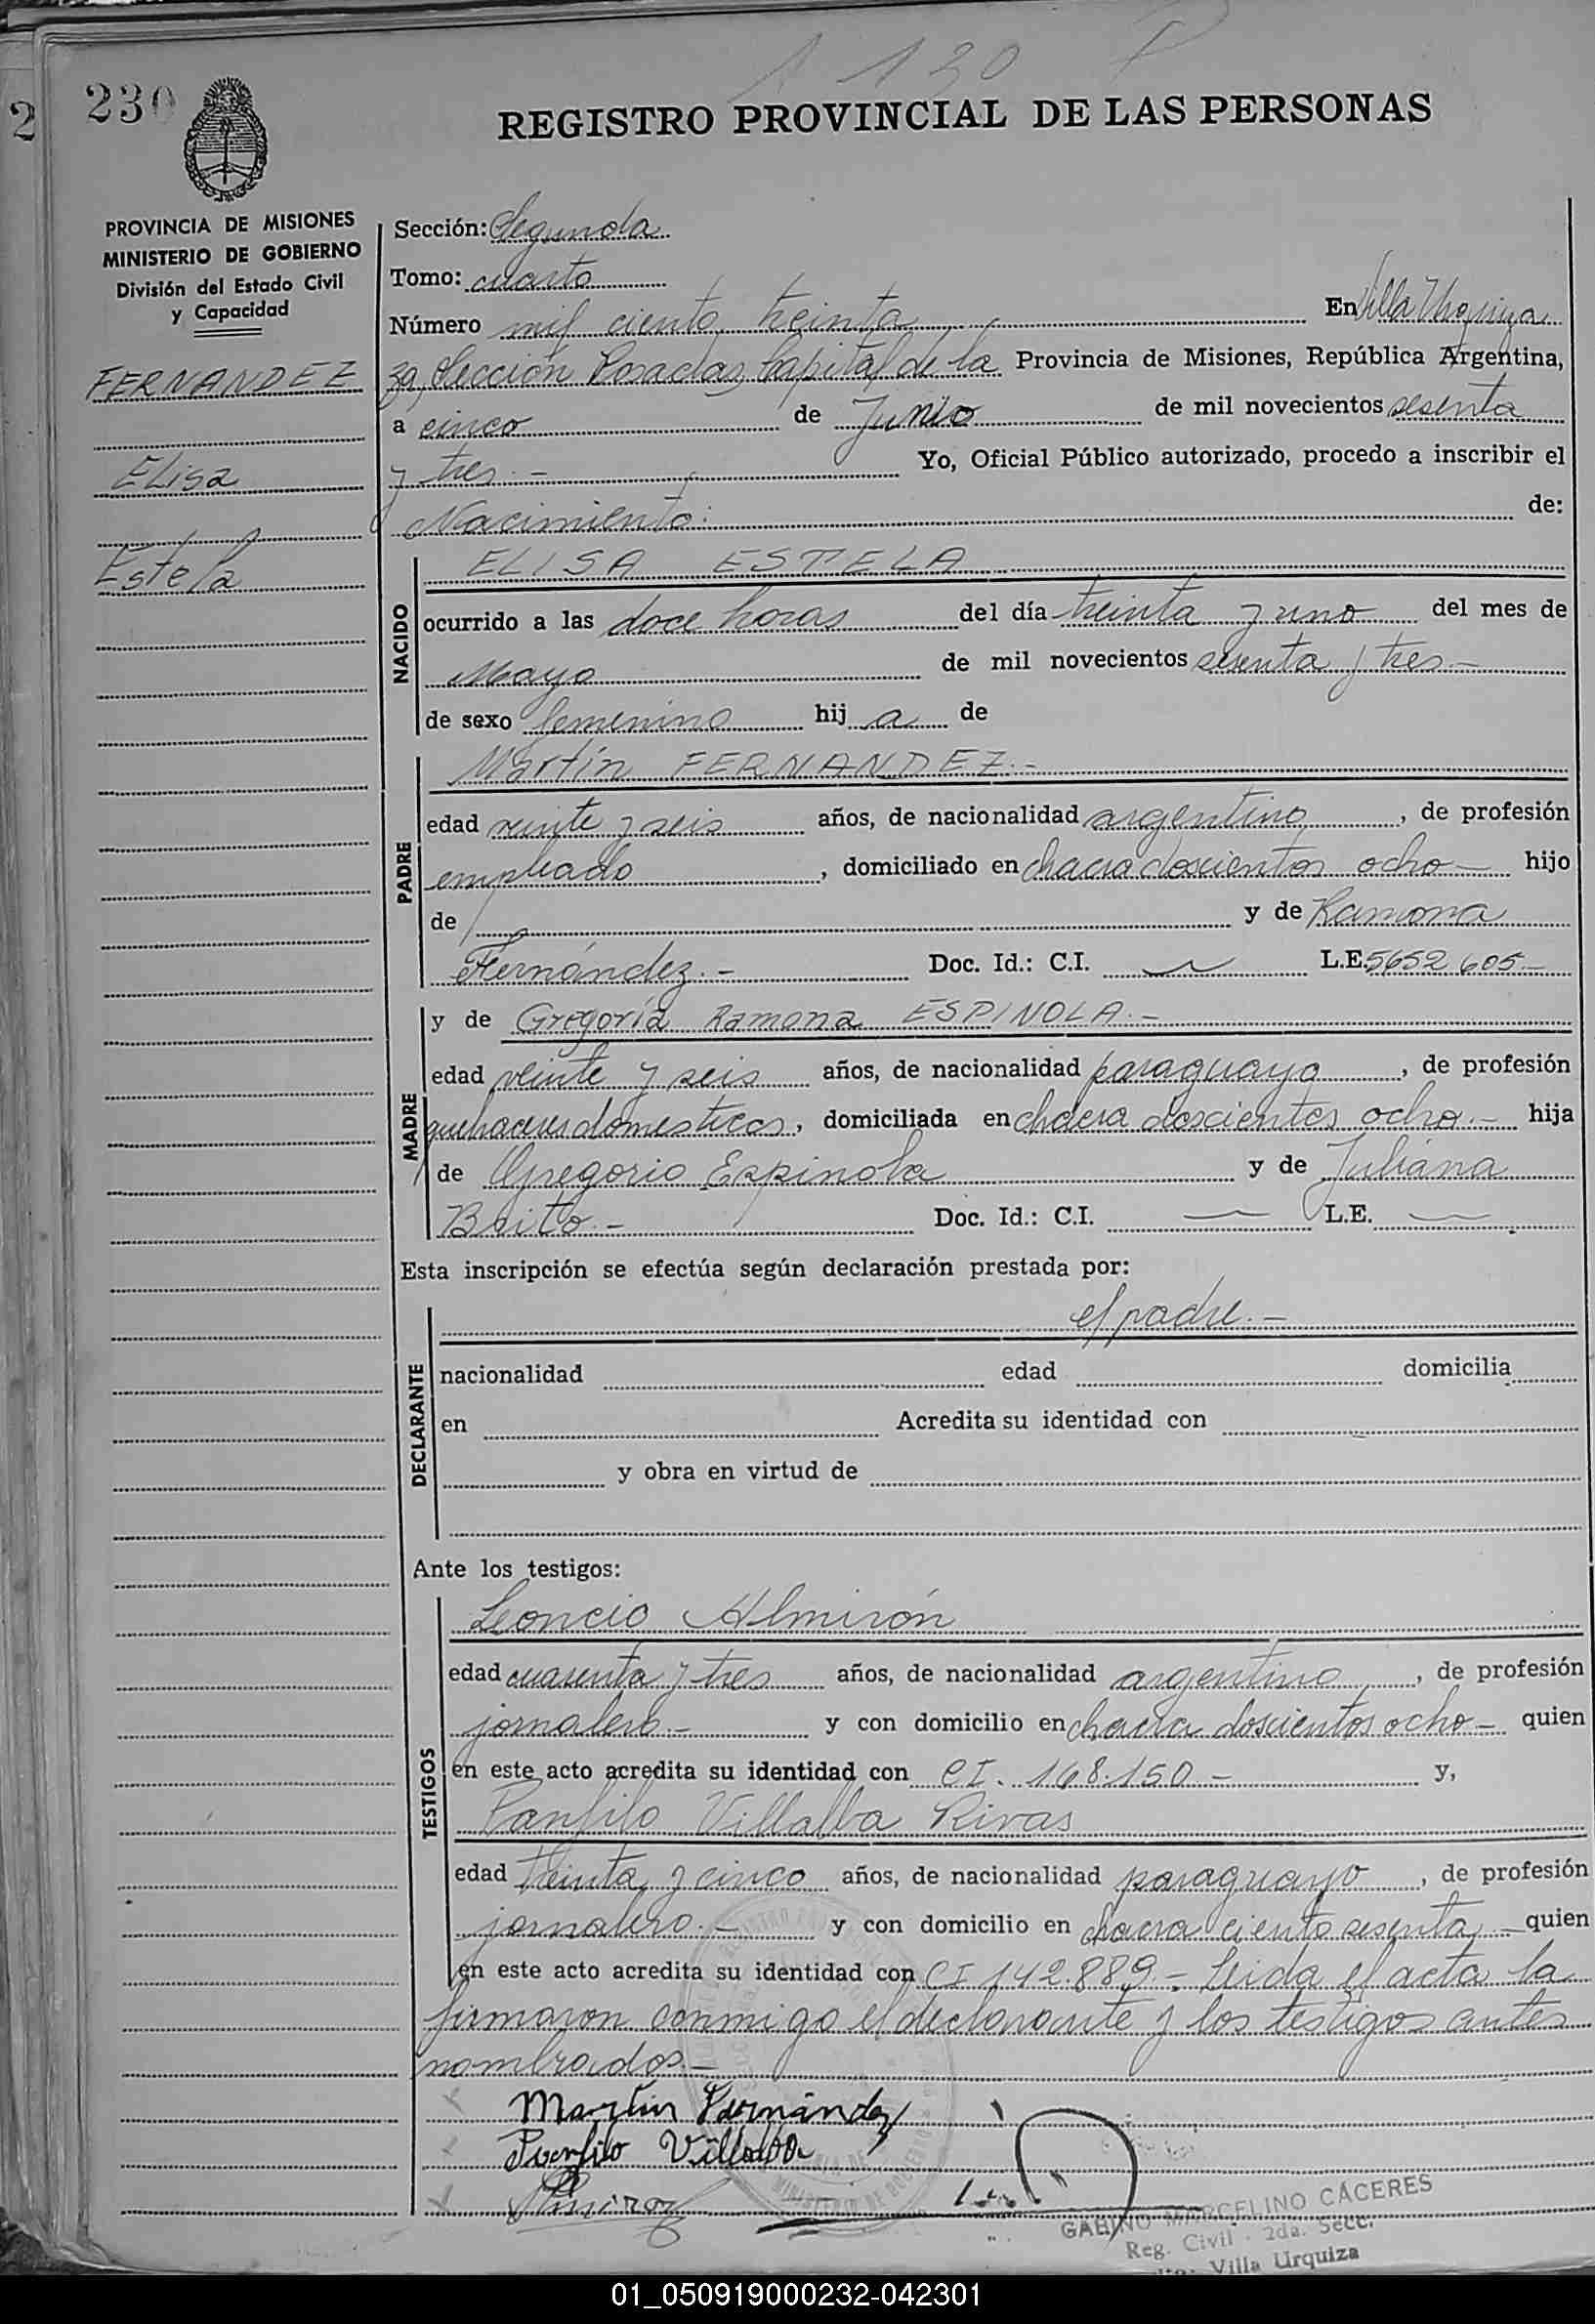 1130
230
2
REGISTRO PROVINCIAL DE LAS PERSONAS
PROVINCIA DE MISIONES
MINISTERIO DE GOBIERNO
División del Estado Civil
y Capacidad
FERNANDEZ
Elisa
Estela
Sección: Segunda
Tomo: cuarto
Número mil ciento treinta En Villa Urquiza
Sección Posadas Capital de la Provincia de Misiones, República Argentina,
a cinco de Junio de mil novecientos sesenta
y tres.- Yo, Oficial Público autorizado, procedo a inscribir el
Nacimiento: de:
NACIDO
ELISA ESTELA
ocurrido a las doce horas del día treinta y uno del mes de
Mayo de mil novecientos sesenta y tres.-
de sexo femenino hij a de
PADRE
Martín FERNANDEZ.-
edad veinte y seis años, de nacionalidad argentino, de profesión
empleado, domiciliado en chacra doscientos ocho hijo
de y de Ramona
Fernández.- Doc. Id.: C.I. L.E. 5652605.-
MADRE
y de Gregoria Ramona ESPINOLA.-
edad veinte y seis años, de nacionalidad paraguaya, de profesión
quehaceres domesticos, domiciliada en chacra doscientos ocho.- hija
de Gregorio Espinola y de Juliana
Doc. Id.: C.I. — L.E. —
Esta inscripción se efectúa según declaración prestada por:
DECLARANTE
el padre.-
nacionalidad edad domicilia
en Acredita su identidad con
y obra en virtud de
Ante los testigos:
TESTIGOS
Leoncio Almirón
edad cuarenta y tres años, de nacionalidad argentino, de profesión
jornalero.- y con domicilio en chacra doscientos ocho- quien
en este acto acredita su identidad con CI. 168.150- y,
Panfilo Villalba Rivas
edad treinta y cinco años, de nacionalidad paraguayo, de profesión
jornalero.- y con domicilio en chacra ciento sesenta.- quien
en este acto acredita su identidad con CI 142.889.- Leida el acta la
firmaron conmigo el declarante y los testigos antes
nombrados.-
Martin Fernández
Panfilo Villalba
GABINO MARCELINO CÁCERES
Reg. Civil - 2da. Secc.
Villa Urquiza
01_050919000232-042301